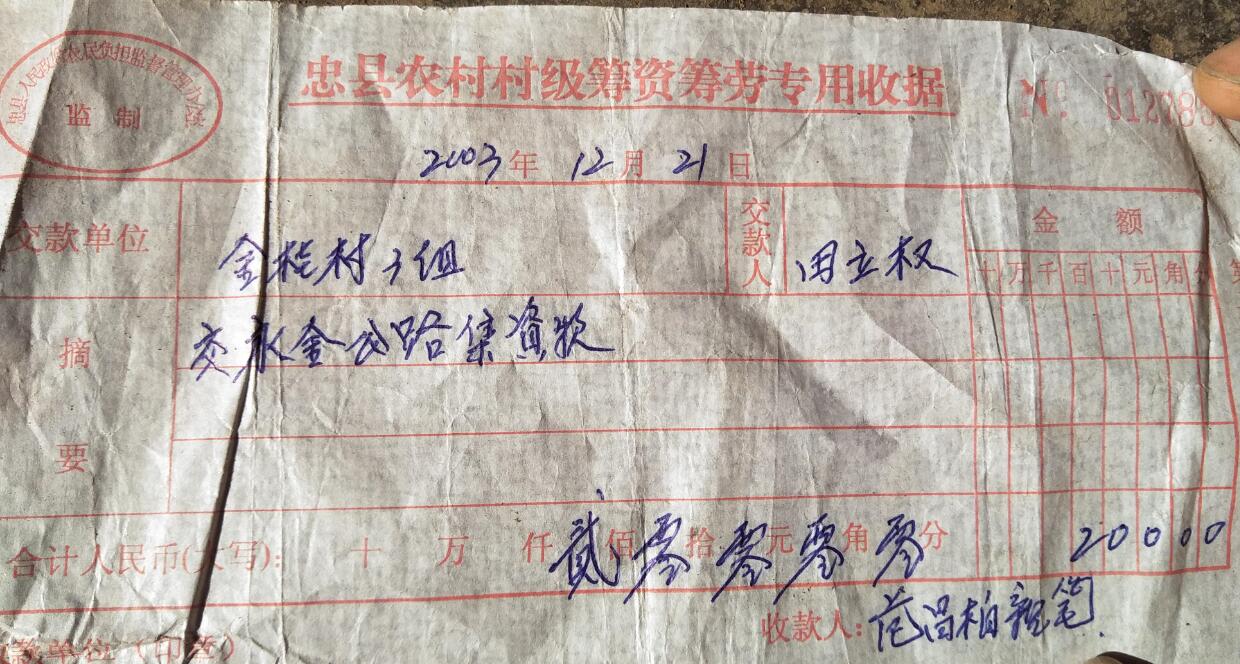 忠县人民政府农民负担监督管理办公室
监制
忠县农村村级筹资筹劳专用收据
№ 01278
2003年12月21日
交款单位 金桂村3组 交款人 田立权 金额
十万千百十元角分
第
摘要 交永金公路集资款
合计人民币(大写): 十 万 仟 贰佰零拾零元零角零分 20000
收款人: 范昌柏亲笔
收款单位(印章)